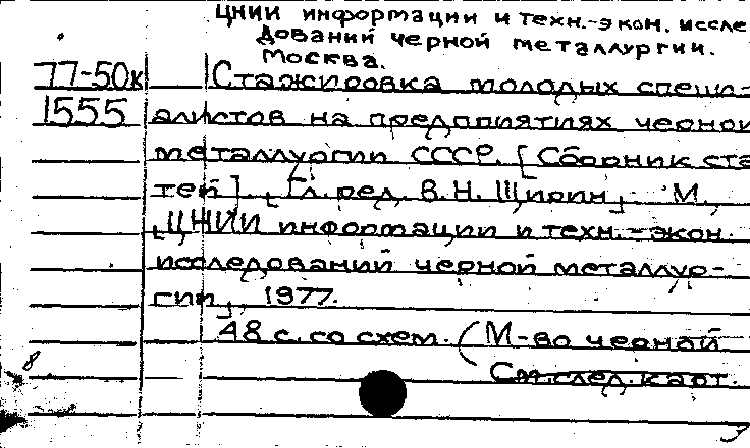 ЦНИИ информации и техн.-экон. иссле
дований черной металлургии.
Москва.
77-50к Стажировка молодых специ-
1555 алистов на предприятиях черной
металлургии СССР. [Сборник ста
тей]. [Гл. ред. В.Н. Щирин]. М.,
[ЦНИИ информации и техн.-экон.
исследований черной металлур-
гии], 1977.
48 с. со схем. (М-во черной
См. след. карт.
8